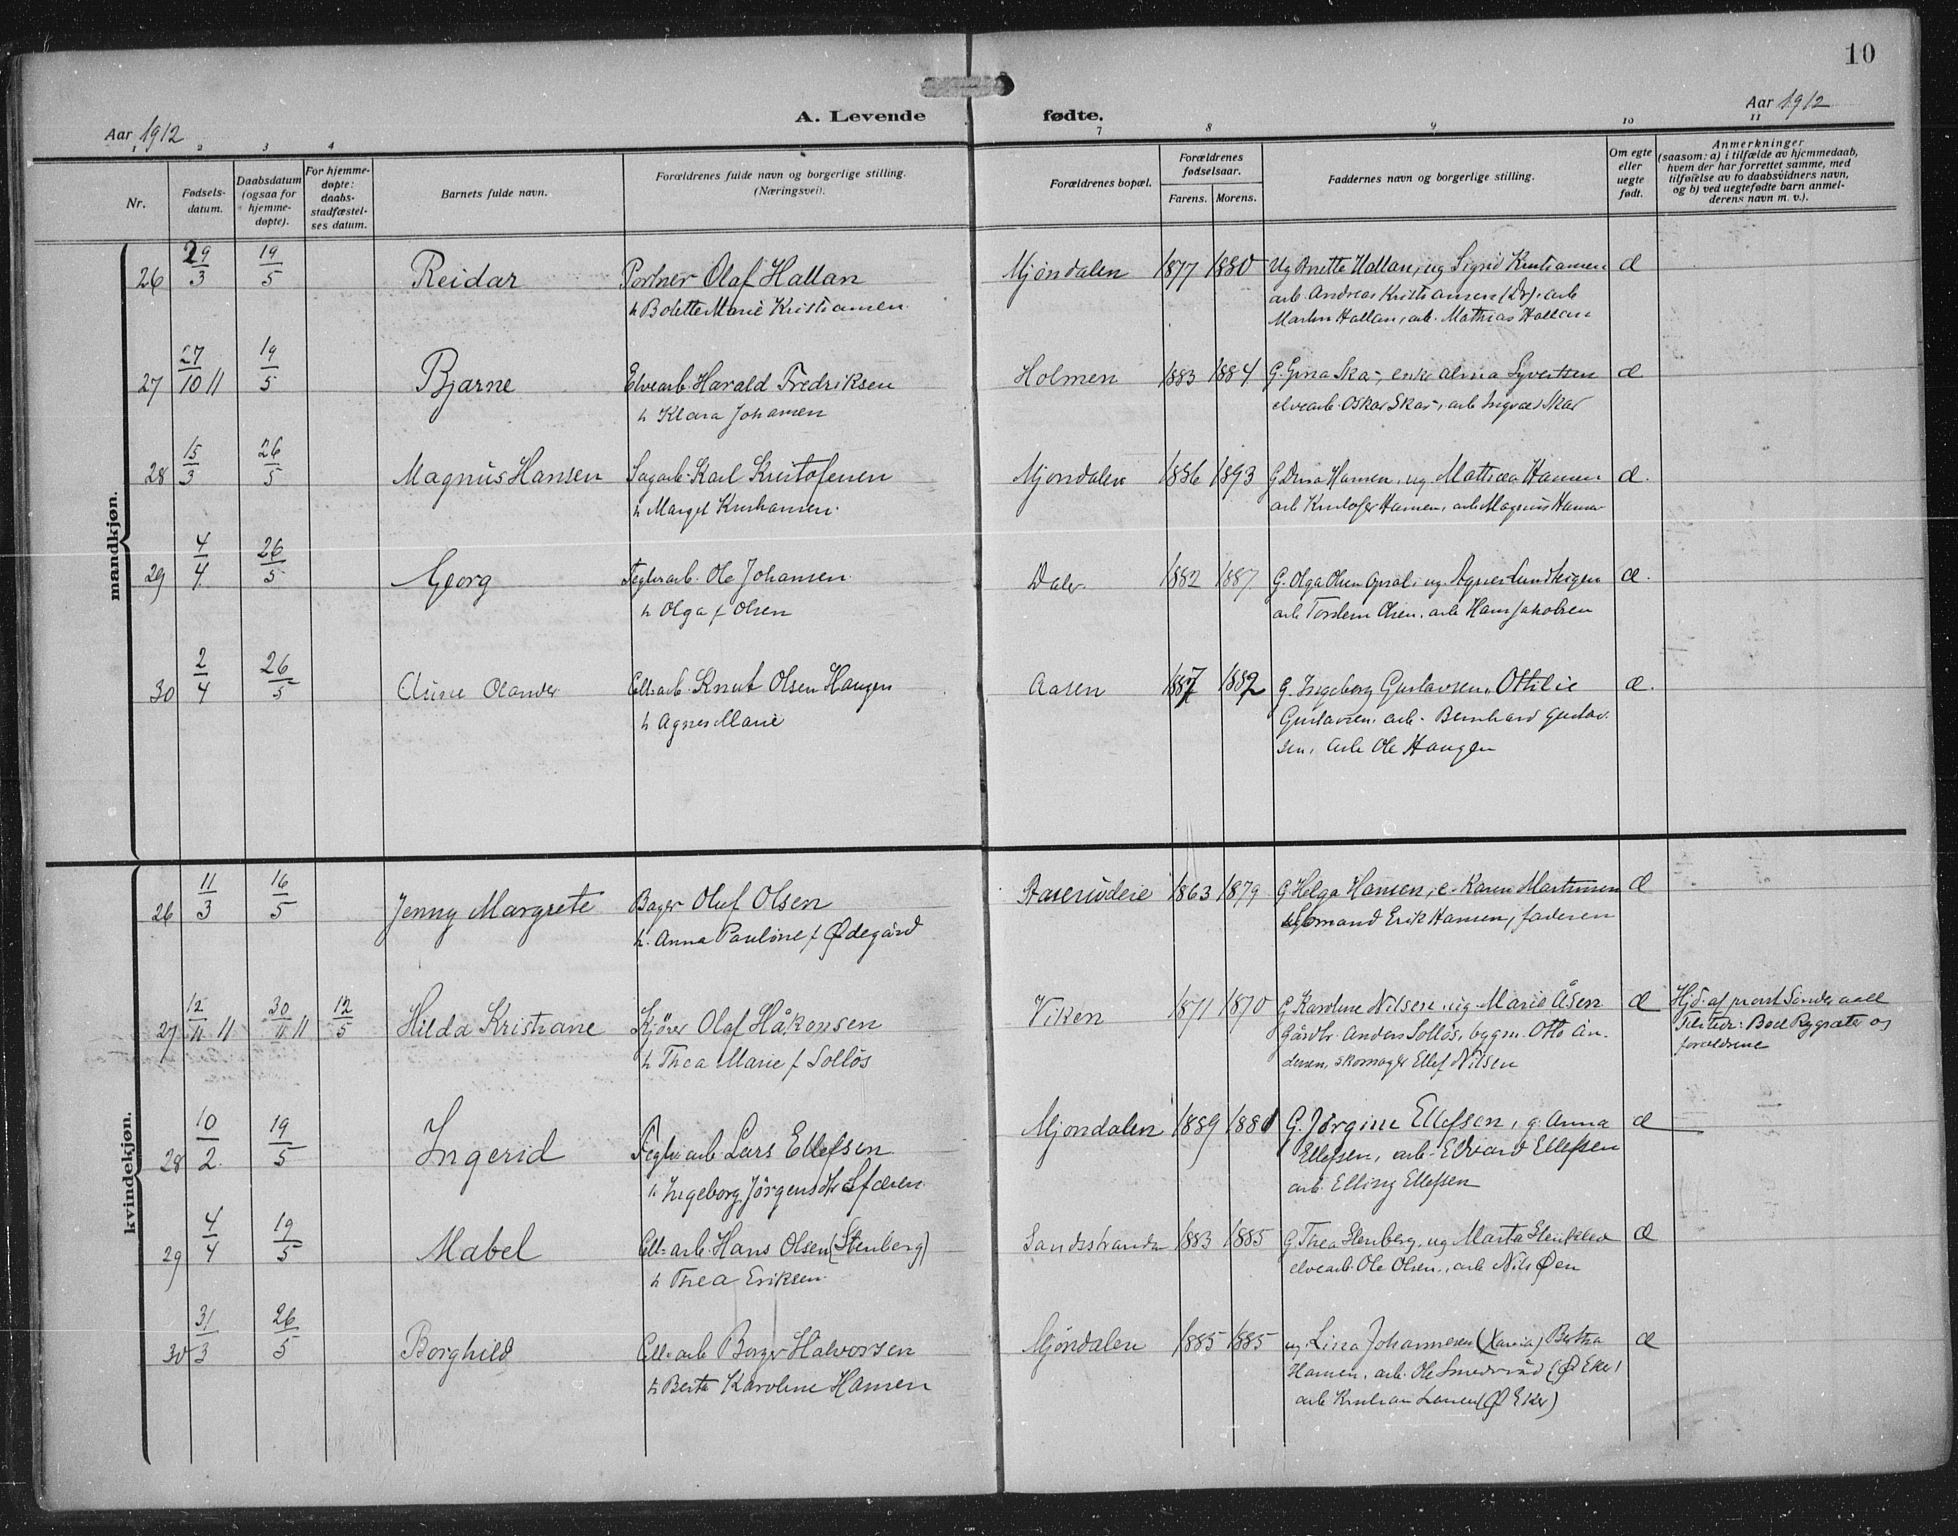 10
Aar 1912
A. Levende fødte.
Aar 1912
1 2 3 4 7 8 9 10 11
Nr.
Fødsels-
datum.
Daabsdatum
(ogsaa for
hjemme-
døpte).
For hjemme-
døpte:
daabs-
stadfæstel-
ses datum.
Barnets fulde navn.
Forældrenes fulde navn og borgerlige stilling.
(Næringsvei).
Forældrenes bopæl.
Forældrenes
fødselsaar.
Farens. Morens.
Faddernes navn og borgerlige stilling.
Om egte
eller
uegte
født.
Anmerkninger
(saasom: a) i tilfælde av hjemmedaab,
hvem der har forrettet samme, med
tilføielse av to daabsvidners navn,
og b) ved uegtefødte barn anmel-
derens navn m. v.).
mandkjøn.
26 29/3 19/5 Reidar Portner Olaf Hallan Mjøndalen 1877 1880 Ug Anette Hallan, ug Sigrid Kristiansen æ
h Bolette Marie Kristiansen arb. Andreas Kristiansen (Dr), arb
Martin Hallan, arb. Mathias Hallan
27 27/10 11 19/5 Bjarne Elvearb. Harald Fredriksen Holmen 1883 1884 G. Gina Skar, enke Alma Syvertsen æ
h Klara Johansen elvearb. Oskar Skar, arb Ingvar Skar
28 15/3 26/5 Magnus Hansen Sagarb. Karl Kristofersen Mjøndalen 1886 1893 G Dina Hansen, ug Mathea Hansen æ.
h Margit Kristiansen. arb Kristofer Hansen, arb Magnus Hansen
29 4/4 26/5 Georg Teglv.arb. Ole Johansen Daler 1882 1887 G. Olga Olsen Opsal, ug. Agnes Lundteigen æ.
h Olga f Olsen arb Torstein Olsen, arb Hans Jakobsen
30 2/4 26/5 Olander Cell.arb. Knut Olsen Haugen Aasen 1887 1882 G. Ingeborg Gustavsen, Ottilie æ.
h Agnes Marie Gustavsen, arb. Bernhard Gustav-
sen, arb Ole Haugen
kvindekjøn.
26 11/3 16/5 Jenny Margrete Bager Oluf Olsen 1863 1879 G Helga Hansen, e. Karen Martinsen æ
h. Anna Pauline f Ødegård Erik Hansen, faderen
27 12/11 11 30/11 11 12/5 Hilda Kristiane Kjører Olaf Håkonsen Viken 1871 1870 G Karoline Nilsen, ug Marie Åsen æ Hjd. af prost Sinding Aall
h Thea Marie f Solløs Gårdbr. Anders Solløs, bygm. Otto An- Tilsted: Boel Rygsæter og
dersen, skomager Ellef Nilsen forældrene
28 10/2 19/5 Ingerid Teglv.arb Lars Ellefsen Mjøndalen 1889 1881 G. Jørgine Ellefsen, g. Anna æ
h Ingeborg Jørgensdtr Ellefsen, arb. Edvard Ellefsen
arb. Elling Ellefsen
29 4/4 19/5 Mabel Cell.arb. Hans Olsen (Stenberg) Sandsstranda 1883 1885 G Thea Stenberg, ug Marta æ
h Thea Eriksen. elvearb. Ole Olsen, arb Nils Øen
30 31/3 26/5 Borghild Cell.arb Borger Halvorsen Mjøndalen 1885 1885 ug. Lina Johannesen Bertha æ
h Berte Karoline Hansen Hansen, arb. Ole Smedsrud (Ø Eker)
arb Kristian Larsen (Ø Eker)